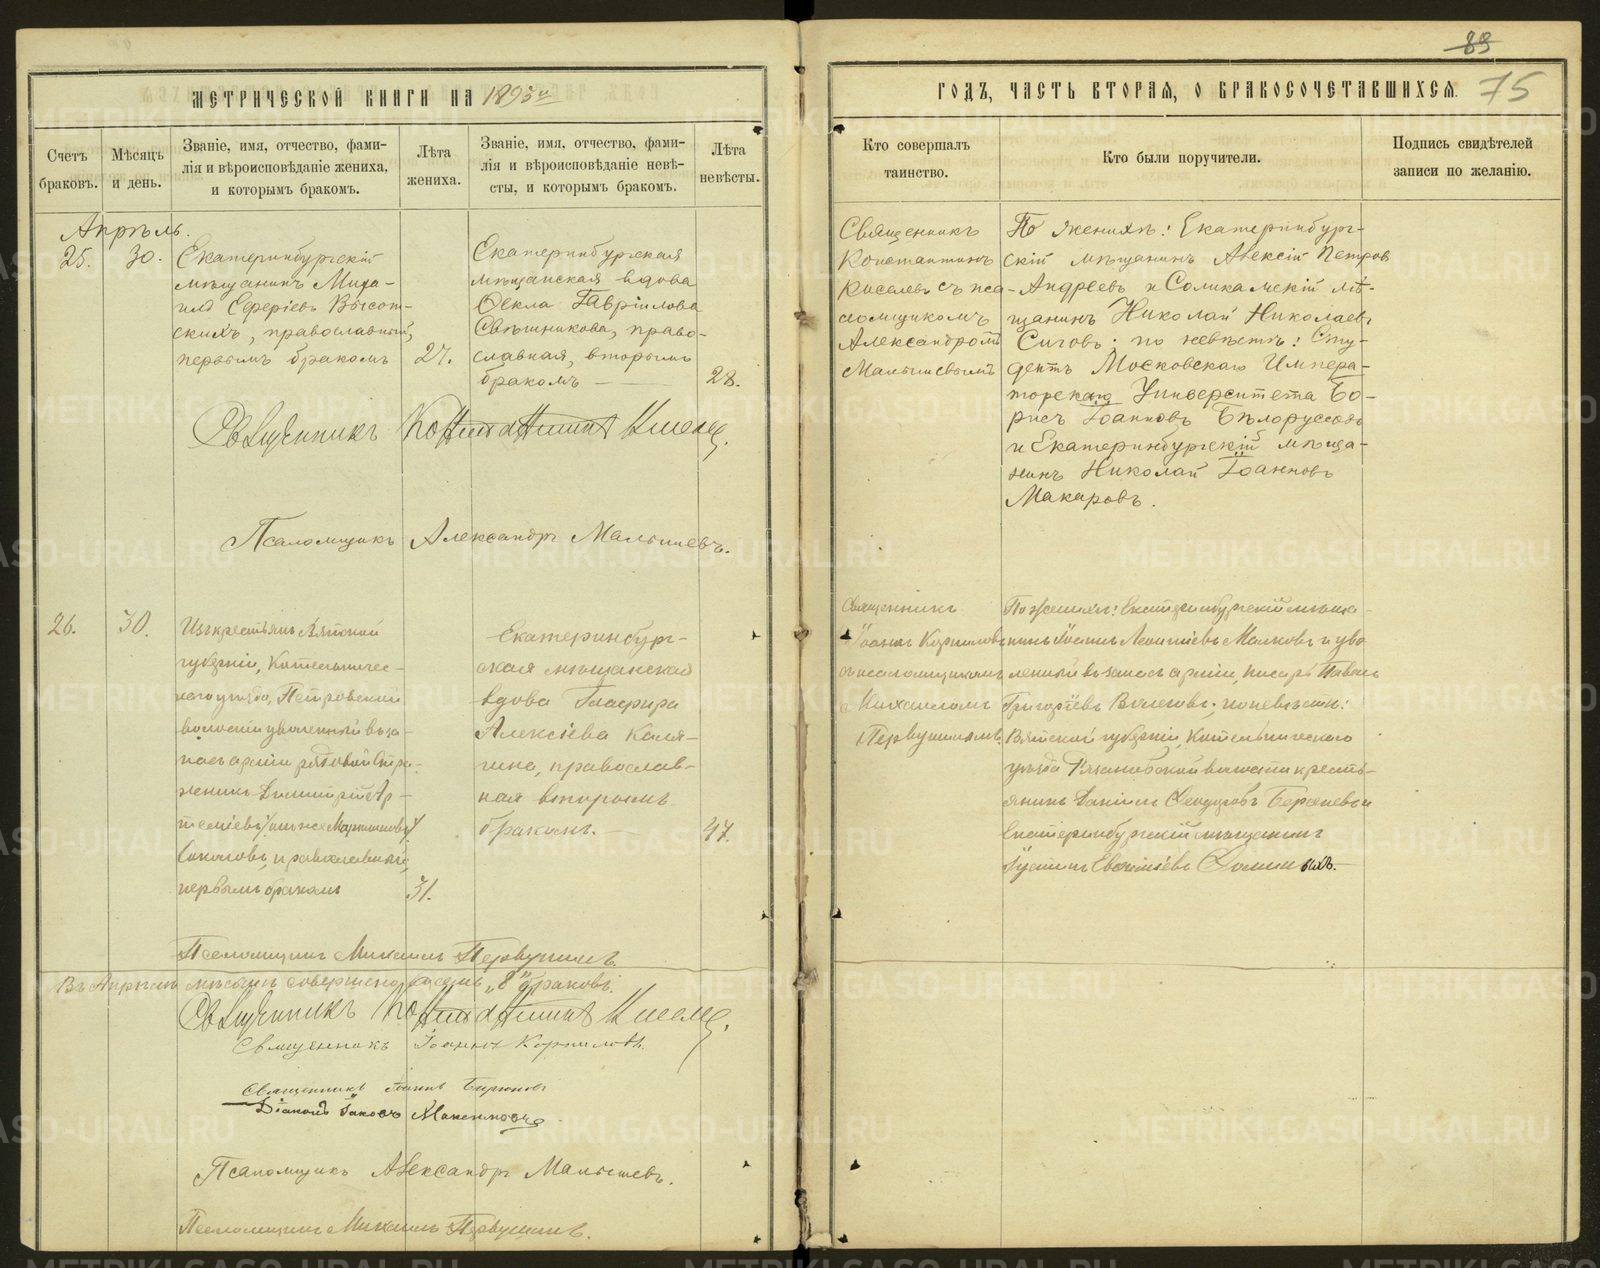 89
75
МЕТРИЧЕСКОЙ КНИГИ НА 1895й
ГОДЪ, ЧАСТЬ ВТОРАЯ, О БРАКОСОЧЕТАВШИХСЯ.
Счетъ браковъ.
Мѣсяцъ и день.
Званіе, имя, отчество, фами-
лія и вѣроисповѣданіе жениха,
и которымъ бракомъ.
Лѣта
жениха.
Званіе, имя, отчество, фами-
лія и вѣроисповѣданіе невѣ-
сты, и которымъ бракомъ.
Лѣта
невѣсты.
Кто совершалъ
таинство.
Кто были поручители.
Подпись свидѣтелей
записи по желанію.
Апрѣль.
25.
30.
Екатеринбургскій
мѣщанинъ Миха-
илъ Ефреіевъ Высот-
скихъ, православный,
первымъ бракомъ
27.
Екатеринбургская
мѣщанская вдова
Ѳекла Гавріилова
Свѣшникова, право-
славная, вторымъ
бракомъ
28.
Священникъ
Константинъ
Киселевъ съ пса-
ломщикомъ
Александромъ
Малышевымъ
По женихѣ: Екатеринбург-
скій мѣщанинъ Алексій Петровъ
Андреевъ и Соликамскій мѣ-
щанинъ Николай Николаевъ
Сиговъ; по невѣстѣ: Сту-
дентъ Московскаго Импера-
торскаго Университета Бо-
рисъ Іоанновъ Бѣлоруссовъ
и Екатеринбургскій мѣща-
нинъ Николай Іоанновъ
Макаровъ.
Священникъ Константинъ Киселевъ
Псаломщикъ Александръ Малышевъ.
26.
30.
Изъ крестьянъ Вятской
губерніи, Котельничес-
каго уѣзда, Петровской
волости уволенный въ за-
пасъ арміи рядовой
Димитрій Ар-
теміевъ
Соколовъ, православный,
первымъ бракомъ
31.
Екатеринбург-
ская мѣщанская
вдова Глафира
Алексіева Каля-
гина, православ-
ная вторымъ
бракомъ.
47.
Священникъ
Іоаннъ Корниловъ
съ псаломщикомъ
Михаиломъ
Первушинымъ.
По женихѣ: Екатеринбургскій мѣща-
нинъ Іоаннъ Леонтіевъ Малковъ и уво-
ленный въ запасъ арміи, писарь Павелъ
Григоріевъ Волеговъ; по невѣстѣ:
Вятской губерніи, Котельническаго
уѣзда волости кресть-
янинъ Даніилъ
Екатеринбургскій мѣщанинъ
Псаломщикъ Михаилъ Первушинъ.
Въ Апрѣлѣ мѣсяцѣ совершено восемь „8" браковъ.
Священникъ Константинъ Киселевъ
Священникъ Іоаннъ Корниловъ.
Священникъ Іоаннъ Бирюковъ
Діаконъ Іаковъ Максимовъ
Псаломщикъ Александръ Малышевъ.
Псаломщикъ Михаилъ Первушинъ.
METRIKI.GASO-URAL.RU